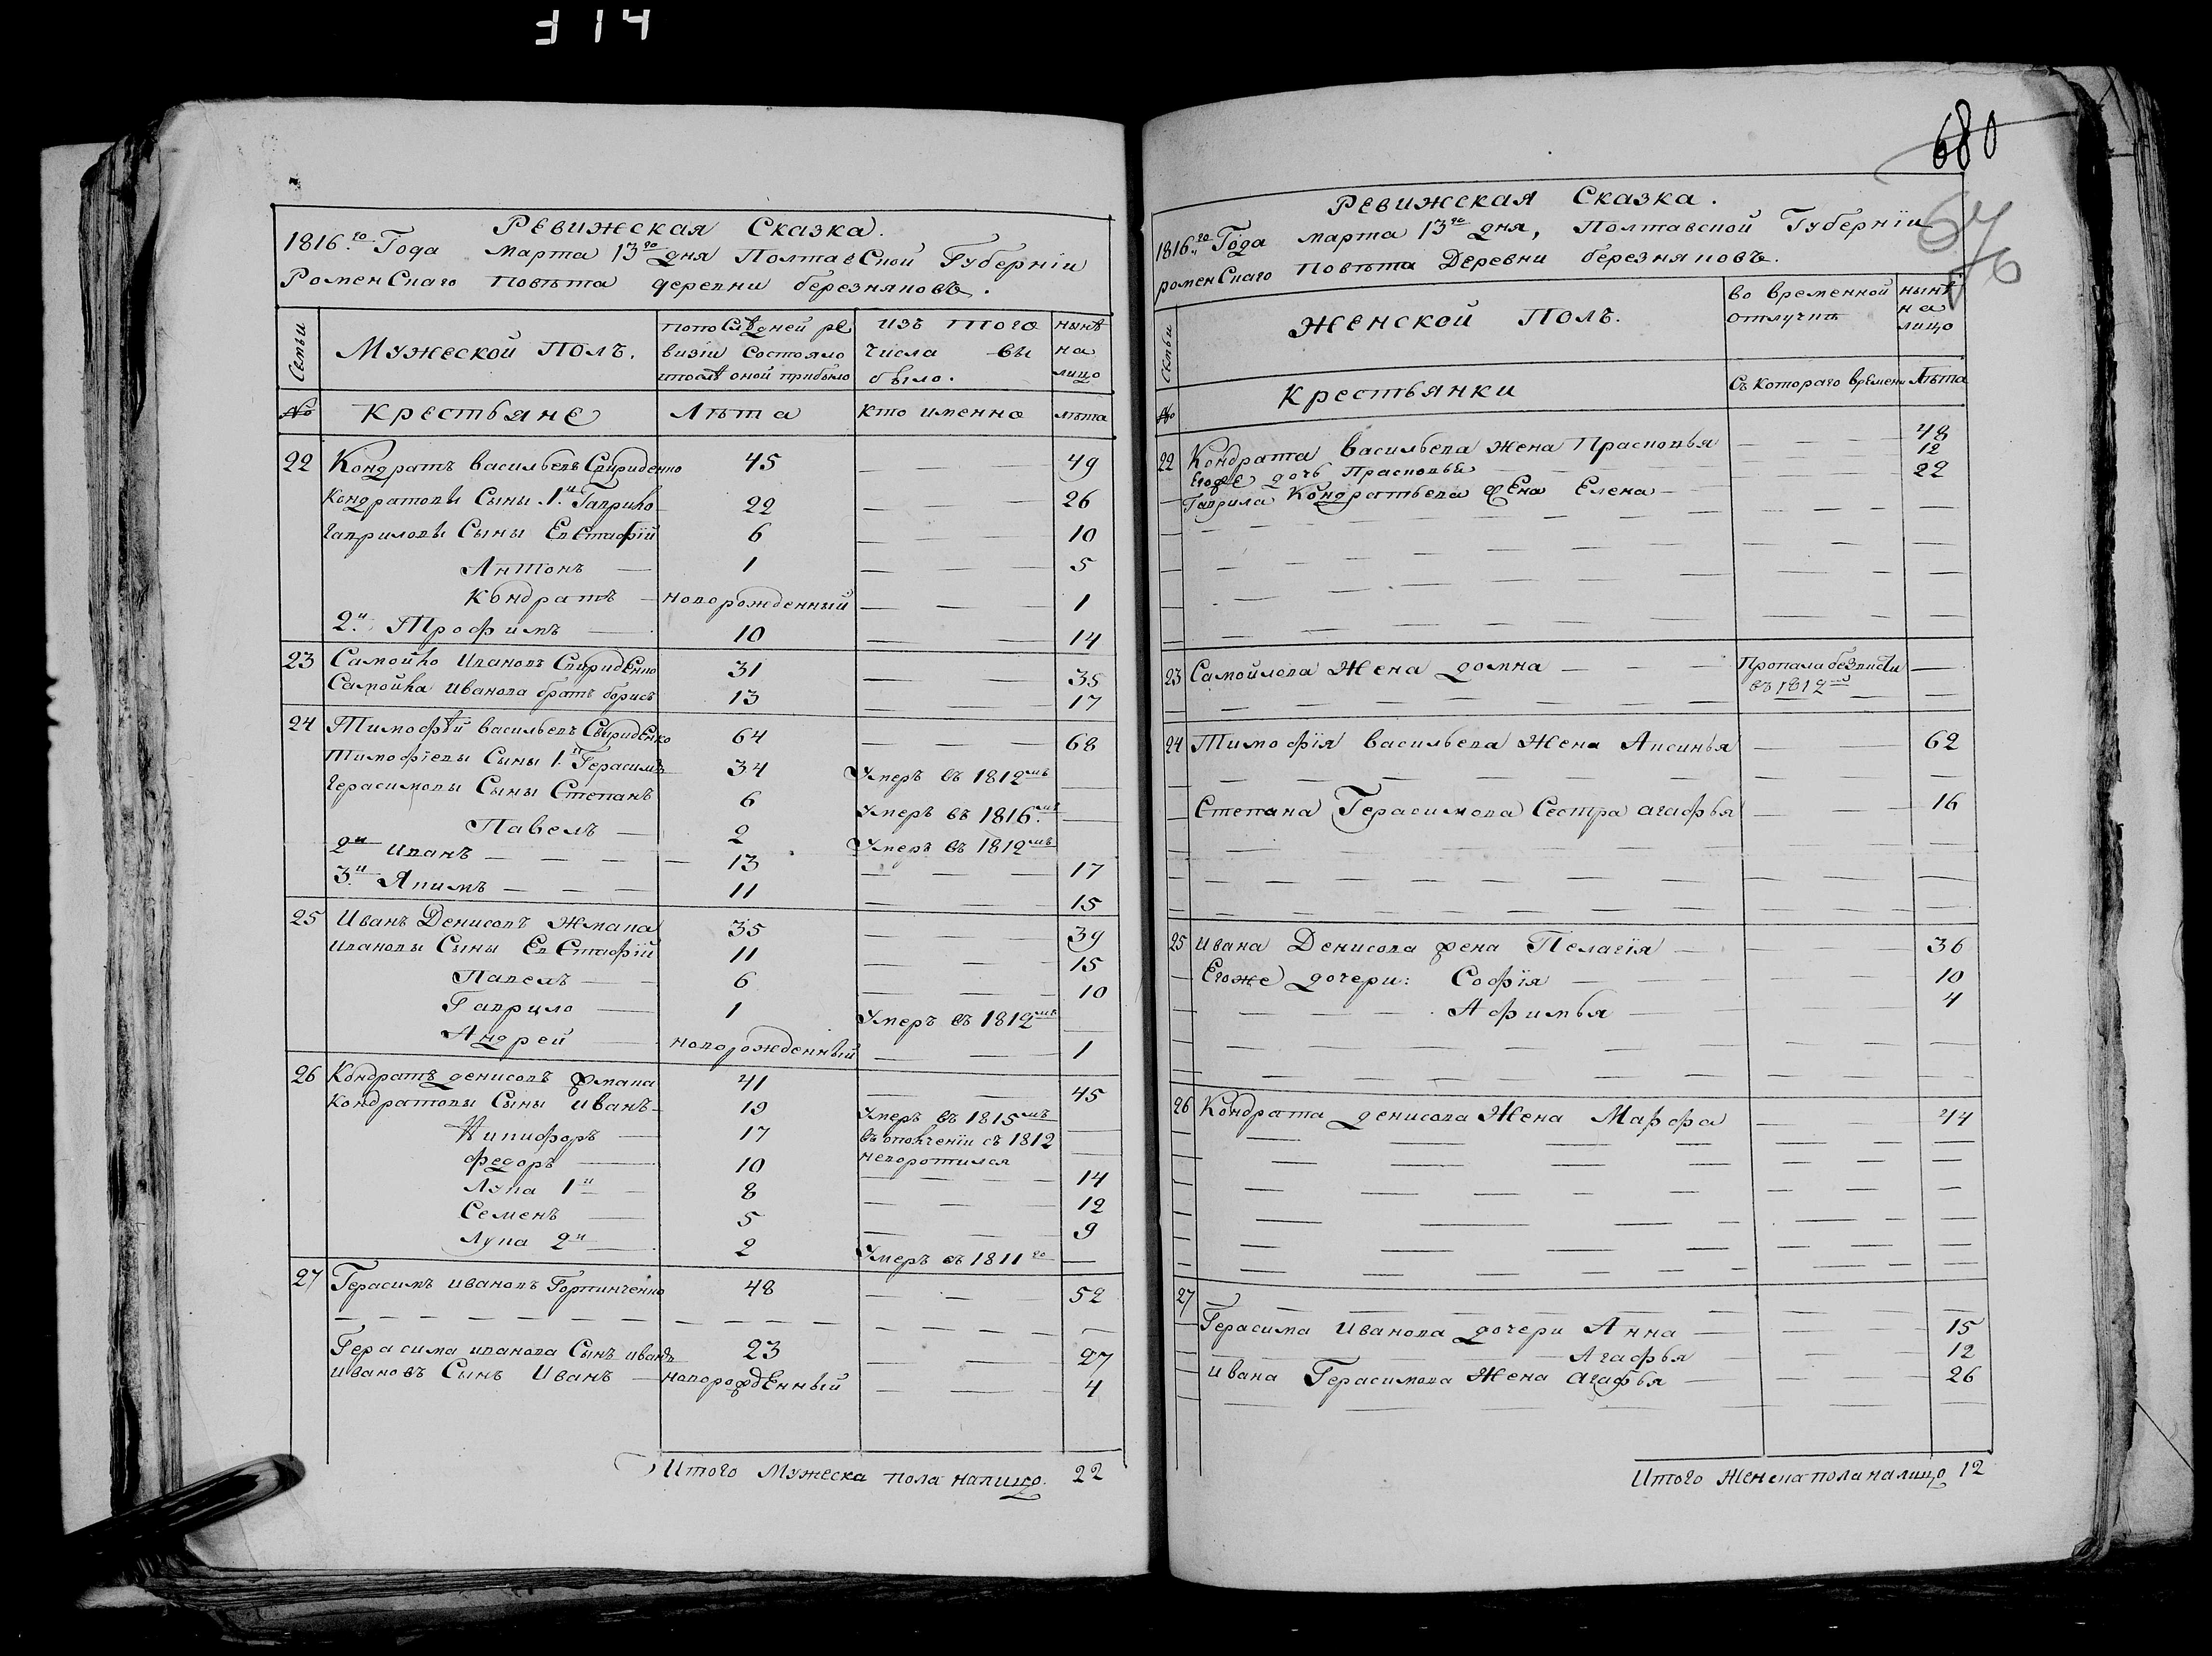 314
Ревижская Сказка.
1816го Года марта 13го дня Полтавской Губернїи
Роменскаго Повѣта деревни березняковъ.
Семьи
Мужеской Полъ.
попослѣдней ре
визїи состояло
ипослѣ оной прибыло
изъ того
числа вы
было.
нынѣ
на
лицо
№ Крестьяне Лѣта кто именно лѣта
22 Кондратъ васильевъ Спириденко 45 — — — 49
Кондратовы Сыны 1й Гаврило 22 — — — 26
Гавриловы Сыны Евстафїй 6 — — — 10
Антонъ — 1 — — — 5
Кондратъ — новорожденный — — — 1
2й Трофимъ — 10 — — 14
23 Самойло Ивановъ СпиридЕнко 31 — — 35
Самойла Иванова братъ борисъ 13 — — 17
24 Тимофѣй васильевъ СвиридЕнко 64 — — — 68
Тимофїевы Сыны 1й Герасимъ 34 Умеръ въ 1812мъ —
Герасимовы Сыны Степанъ 6 Умеръ въ 1816мъ —
Павелъ — 2 Умеръ въ 1812мъ
2й Иванъ — — — — 13 — — — 17
3й Якимъ — — — 11 — — 15
25 Иванъ Денисовъ Жмака 35 — — — 39
Ивановы Сыны ЕвЕтафїй 11 — — 15
Павелъ — — 6 — — 10
Гаврило — 1 Умеръ въ 1812мъ —
Андрей — новорожденный — — 1
26 Кондратъ денисовъ жмака 41 — — — 45
Кондратовы Сыны иванъ 19 Умеръ въ 1815мъ
Никифоръ — 17 въ ополченїи съ 1812 —
неворотился —
федоръ — 10 — — — — 14
Лука 1й — 8 — — — 12
Семенъ — 5 — — — 9
Лука 2й — 2 Умеръ въ 1811го —
27 Герасимъ ивановъ Гортинченко 48 — — 52
— — — — — — — — — — — — — —
Герасима иванова Сынъ иванъ 23 — — — 27
ивановъ Сынъ Иванъ — новорождЕнный — — — 4
Итого Мужеска пола налицо. 22
680
Ревижская Сказка.
1816го Года марта 13го дня, Полтавской Губернїи
роменСкаго Повѣта Деревни березняковъ.
Семьи
Женской Полъ.
во временной
отлучкѣ
нынѣ
на
лицо
№ крестьянки Съ котораго времени Лѣта
22 Кондрата васильева жена Прасковья — — — 48
Егоже дочь Прасковья — — — 12
Гаврила Кондратьева жЕна Елена — — — 22
23 Самойлова Жена домна — — — Пропала безвисти —
въ 1812мъ —
24 Тимофїя васильева Жена Аксинья — — 62
Степана Герасимова Сестра агафья — — 16
25 ивана Денисова жена Пелагїя — — — 36
Егоже дочери: Софїя — — — 10
Афимья — — 4
26 Кондрата денисова Жена Марфа — — 44
27
Герасима Иванова дочери Анна — — — 15
Агафья — — 12
ивана Герасимова Жена агафья — — 26
Итого Женска пола налицо 12